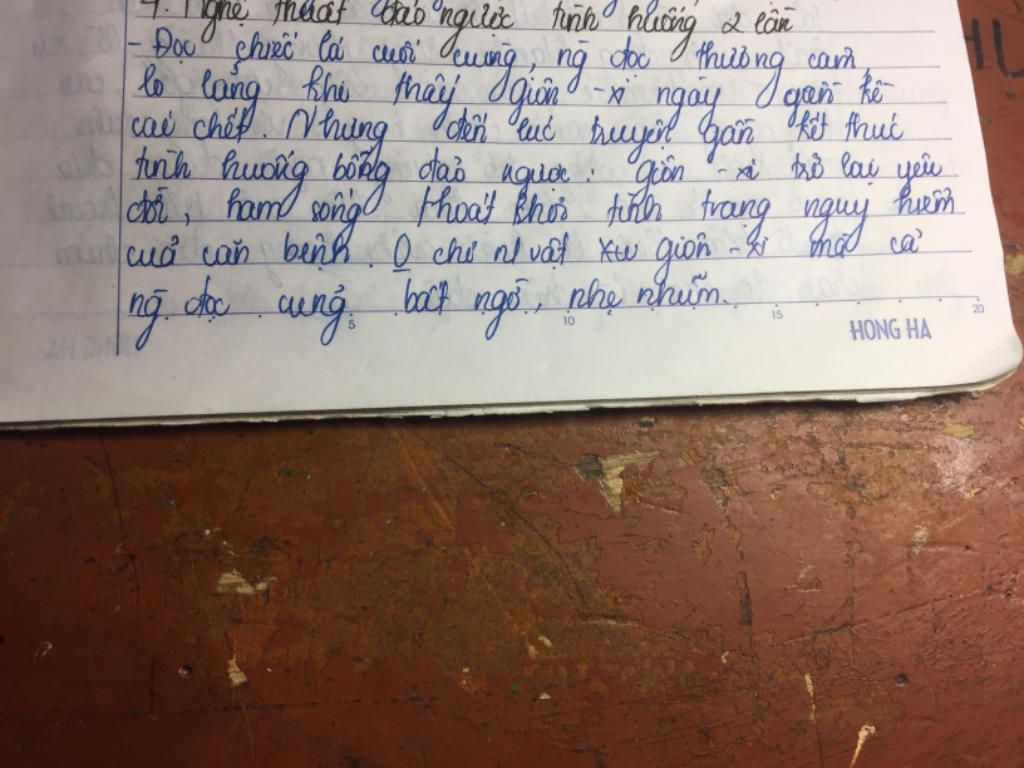 4. Nghệ thuật đảo ngược tình huống 2 lần
- Đọc chiếc lá cuối cùng, ng đọc thường cảm
lo lắng khi thấy Giôn-xi ngày gần kề
cái chết. Nhưng đến lúc truyện gần kết thúc
tình huống bỗng đảo ngược: Giôn-xi trở lại yêu
đời, ham sống thoát khỏi tình trạng nguy hiểm
của căn bệnh. O chỉ n/vật xiu giôn-xi mà cả
ng đọc cũng bất ngờ, nhẹ nhõm.
5 10 15 20
HONG HA